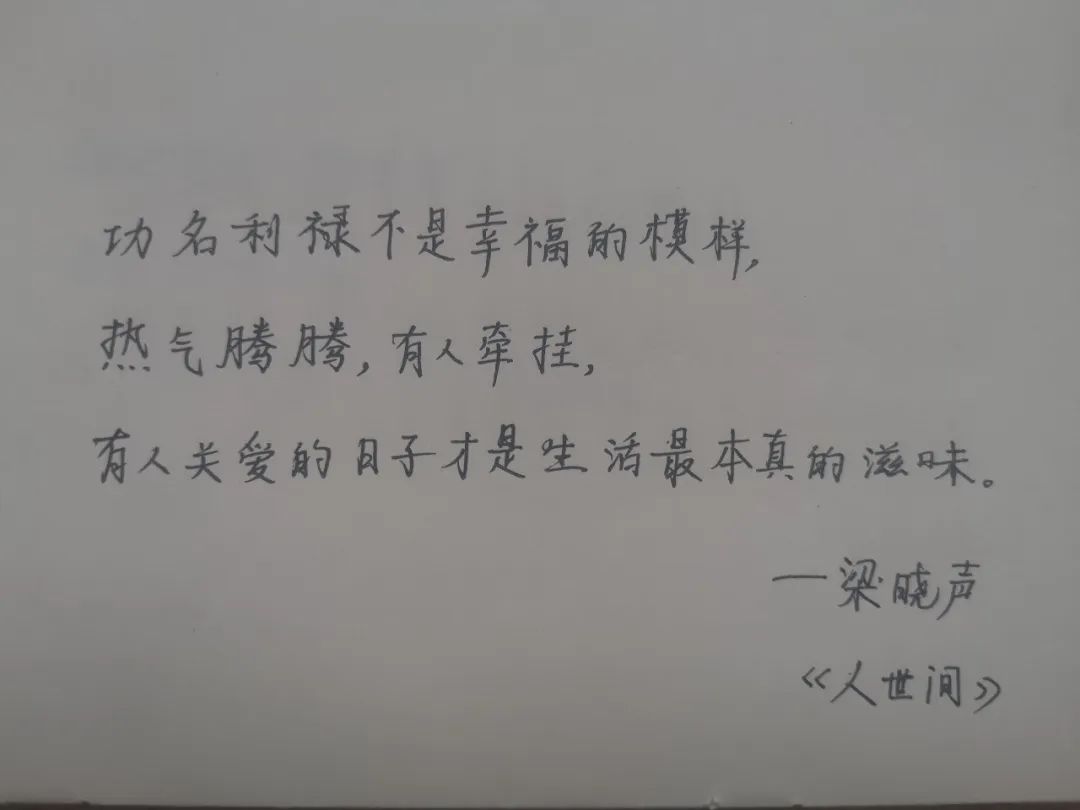 功名利禄不是幸福的模样，
热气腾腾，有人牵挂，
有人关爱的日子才是生活最本真的滋味。
—梁晓声
《人世间》